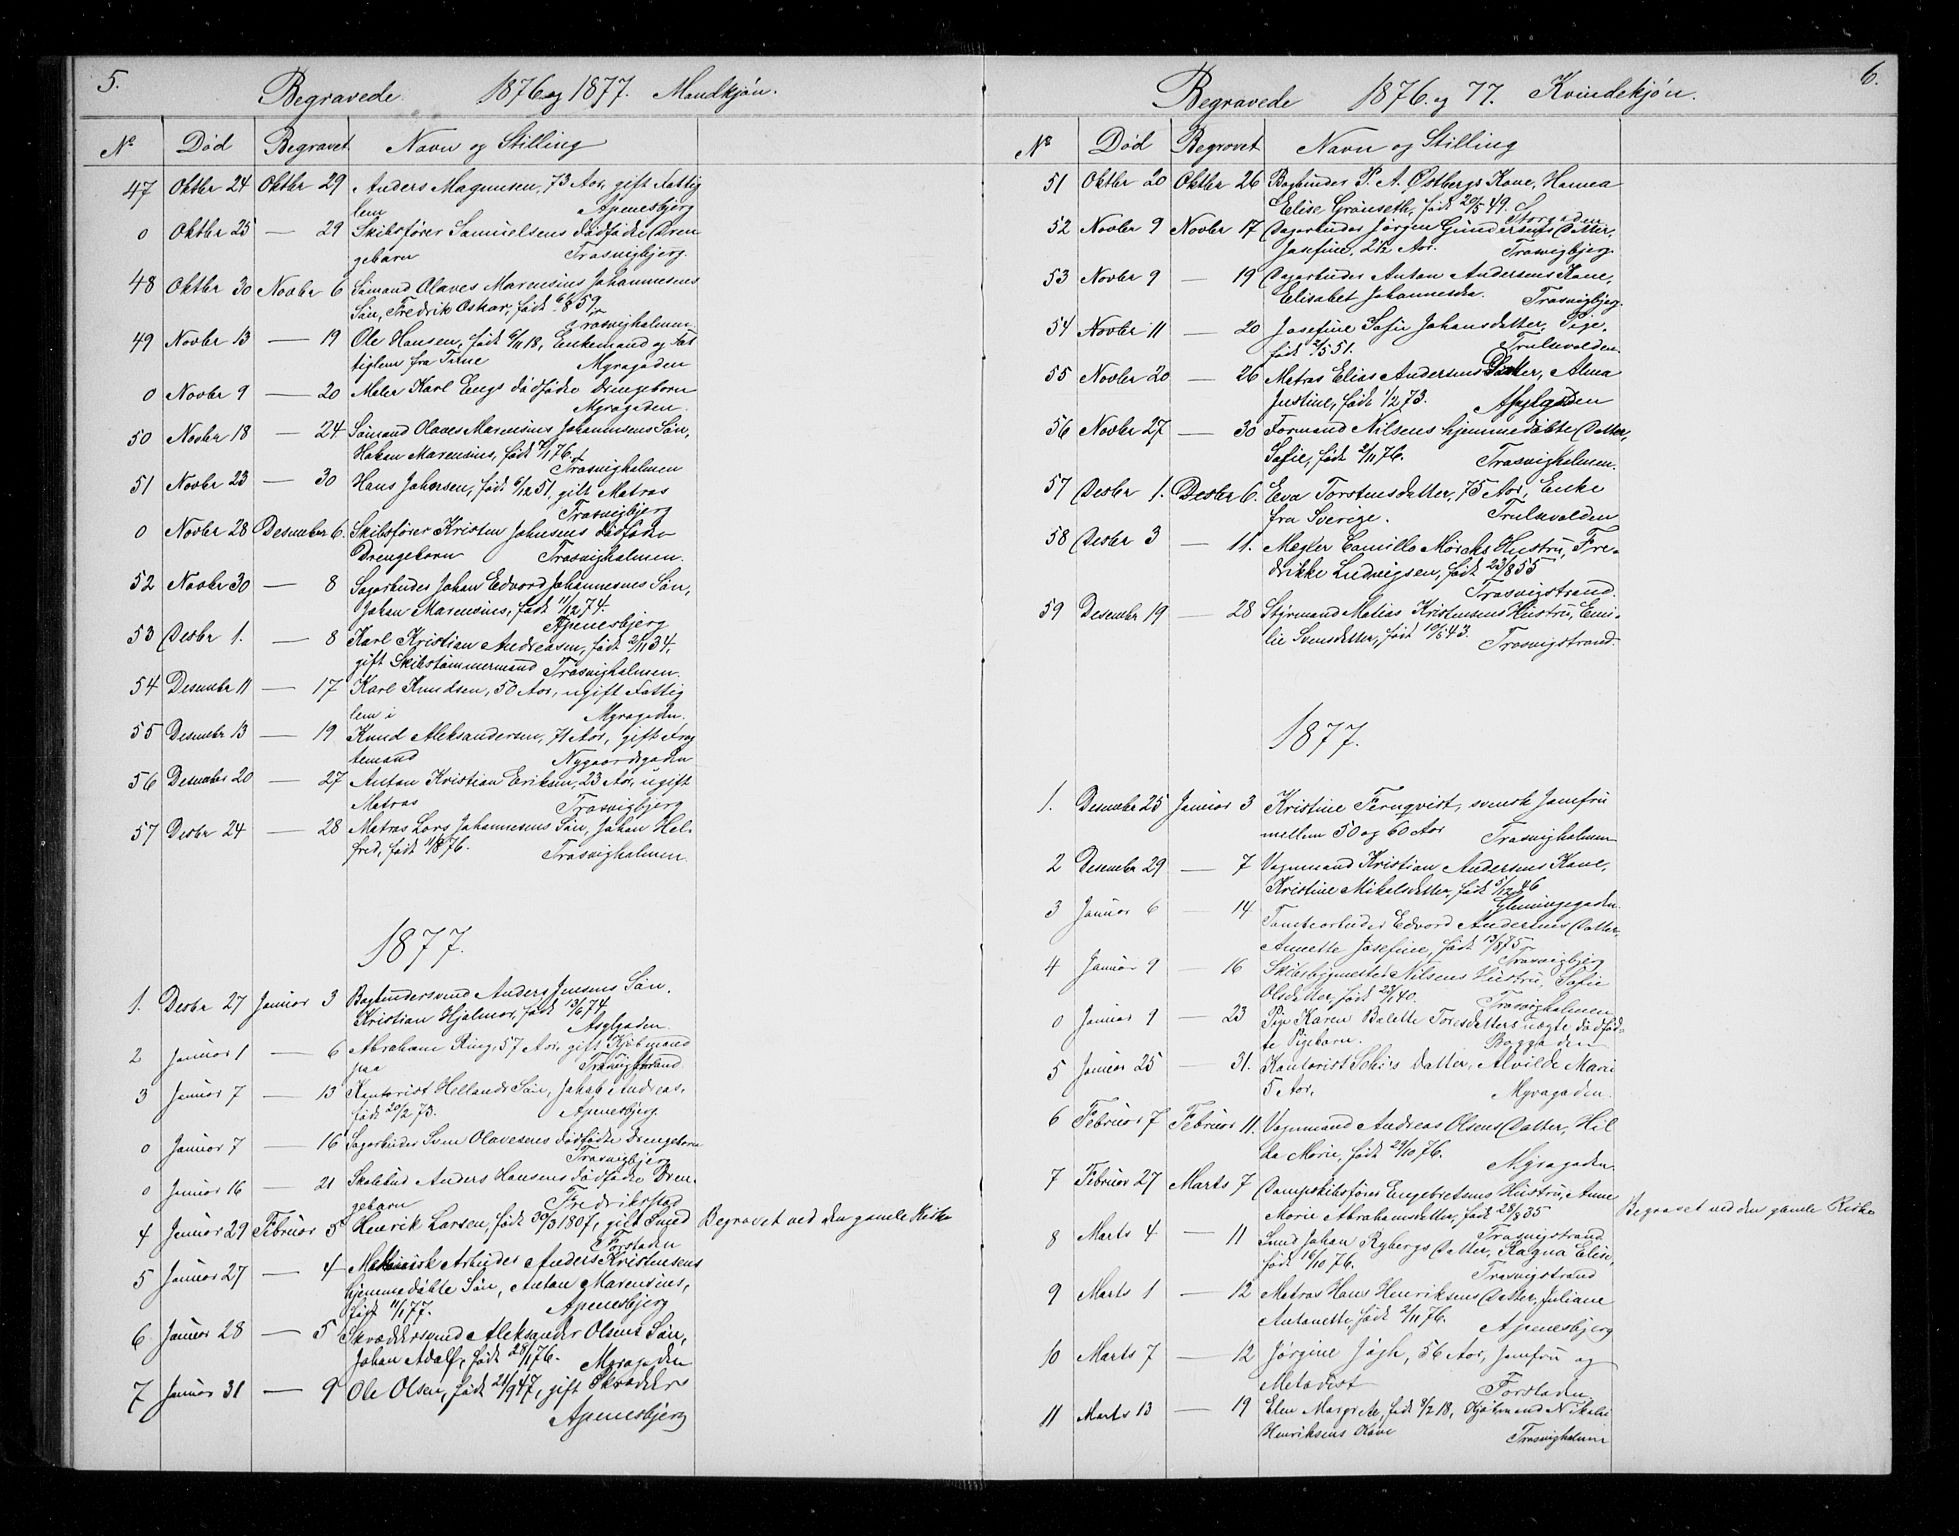 5.
Begravede 1876 og 1877. Mandkjøn.
No Død Begravet Navn og Stilling
47 Oktbr 24 Oktbr 29 Anders Magnusen, 73 Aar, gift Fattig
lem Apenesbjerg
0 Oktbr 25 — 29 Skibsfører Samuelsens dødfødte Dren
gebarn Trosvigbjerg.
48 Oktbr 30 Novbr 6 Sømand Olaves Marensius Johannesens
Søn, Fredrik Oskar, født 6/8 59.
Trosvigholmen
49 Novbr 13 — 19 Ole Hansen, født 6/11 18, Enkemand og Fat
tiglem fra Tune Myragaden
0 Novbr 9 — 20 Maler Karl Engs dødfødte Drengebarn
Myragaden.
50 Novbr 18 — 24 Sømand Olaves Marensius Johannesens Søn,
Hakan Marensius, født 7/1 76.
Trosvigholmen
51 Novbr 23 — 30 Hans Johnsen, født 6/12 51, gift Matros
Trosvigbjerg
0 Novbr 28 Desember 6. Skibsfører Kristen Johnsens dødfødte
Drengebarn Trosvigholmen.
52 Novbr 30 — 8 Sagarbeider Johan Edvard Johannesens Søn,
Johan Marensius, født 11/12 74.
Apenesbjerg
53 Desbr 1. — 8 Karl Kristian Andreasen, født 2/11 34,
gift Skibstømmermand Trosvigholmen.
54 Desember 11 — 17 Karl Knudsen, 50 Aar, ugift Fattig
lem i Myragaden.
55 Desember 13 — 19 Knud Aleksandersen, 71 Aar, gift Frag
temand Nygaardsgaden
56 Desember 20 — 27 Anton Kristian Eriksen, 23 Aar, ugift
Matros Trosvigbjerg
57 Desbr 24 — 28 Matros Lars Johannesens Søn, Johan Hel-
fred, født 11/8 76. Trosvigholmen.
1877.
1. Desbr 27 Januar 3 Bagersvend Anders Jensens Søn,
Kristian Hjalmar, født 13/6 74.
Asylgaden
2 Januar 1 — 6 Abraham Ring, 57 Aar, gift Kjøbmand
paa Trosvigstrand
3 Januar 7 — 13 Kontorist Hellands Søn, Jakob Andreas,
født 20/2 73. Apenesbjerg.
0 Januar 7 — 16 Sagarbeider Sven Olavesens dødfødte Drengebarn
Trosvigbjerg
0 Januar 16 — 21 Skolebud Anders Hansens dødfødte Dren-
gebarn Fredrikstad
4 Januar 29 Februar 5 Henrik Larsen, født 30/3 1807, gift Smed Begravet ved den gamle Kirke
Forstaden
5 Januar 27 — 4 Mekanisk Arbeider Anders Kristensens
hjemmedøbte Søn, Anton Marensius,
født 11/1 77. Apenesbjerg
6 Januar 28 — 5 Skræddersvend Aleksander Olsens Søn,
Johan Adolf, født 28/1 76. Myragaden
7 Januar 31 — 9 Ole Olsen, født 21/9 47, gift Skrædder
Apenesbjerg
6.
Begravede 1876 og 77. Kvindekjøn.
No Død Begravet Navn og Stilling
51 Oktbr 20 Oktbr 26 Bogbinder P. A. Østbergs Kone, Hanna
Elise Grönseth, født 20/5 49.
Storgaden
52 Novbr 9 Novbr 17 Dagarbeider Jørgen Gundersens Datter,
Josefine, 2 1/2 Aar. Trosvigbjerg.
53 Novbr 9 — 19 Dagarbeider Anton Andersens Kone,
Elisabet Johannesdtr. Trosvigbjerg.
54 Novbr 11 — 20 Josefine Sofie Johansdatter, Pige,
født 2/5 51. Trulsvolden.
55 Novbr 20 — 26 Matros Elias Andersens Datter, Alma
Justine, født 1/2 73. Asylgaden
56 Novbr 27 — 30 Formand Nilsens hjemmedøbte Datter,
Sofie, født 2/11 76. Trosvigholmen.
57 Desbr 1. Desbr 6. Eva Torstensdatter, 75 Aar, Enke
fra Sverige. Trulsvolden
58 Desbr 3 — 11. Mægler Camillo Mørchs Hustru, Fre-
drikke Ludvigsen, født 23/8 55
Trosvigstrand.
59 Desember 19 — 28 Styrmand Matias Kristensens Hustru, Emi-
lie Svensdatter, født 10/5 43. Trosvigstrand.
1877.
1. Desember 25 Januar 3 Kristine Fernqvist, svensk Jomfru
mellem 50 og 60 Aar Trosvigholmen
2 Desember 29 — 7 Vognmand Kristian Andersens Kone,
Kristine Mikalsdatter, født 5/12 46
Glemmegaden.
3 Januar 6 — 14 Tomtearbeider Edvard Andersens Datter,
Annette Josefine, født 13/8 75.
Trosvigbjerg
4 Januar 9 — 16 Skibsbygmester Nilsens Hustru, Sofie
Olsdatter, født 23/1 40.
Trosvigholmen
0 Januar 9 — 23 Pige Karen Balette Toresdatters uægte dødfød-
te Pigebarn. Baggaden
5 Januar 25 — 31. Kontorist Datter, Alvilde Marie
5 Aar, Myragaden.
6 Februar 7 Februar 11. Vognmand Andreas Olsens Datter, Hil
da Marie, født 29/10 76.
Myragaden.
7 Februar 27 Marts 7 Dampskibsfører Engebretsens Hustru, Anne
Marie Abrahamsdatter, født 28/8 35 Begravet ved den gamle Kirke
Trosvigstrand
8 Marts 4 — 11 Smed Johan Rybergs Datter, Ragna Elise,
født 16/10 76.
Trosvigstrand
9 Marts 1 — 12 Matros Hans Henriksens Datter, Juliane
Antonette, født 2/11 76.
Apenesbjerg
10 Marts 7 — 12 Jørgine Jøgh, 56 Aar, Jomfru og
Metodist Forstaden
11 Marts 13 — 19 Elen Margrete, født 8/2 18, Kjøbmand Nikolai
Henriksens Kone
Trosvigholmen